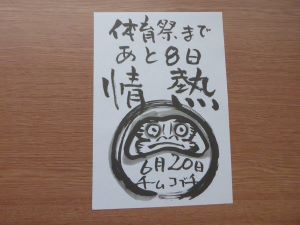 体育祭まで
あと8日
情熱
6月20日
チームコブチ